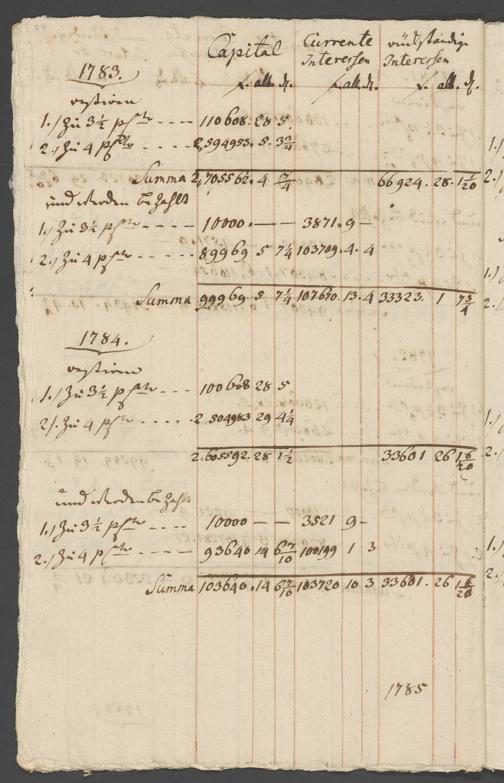 Capital Currente Interessen rückständige Interessen
1783. f. alb. d. f. alb. d. f. alb. d.
restiren
1.) Zu 3½ pCto ---- 110608. 28 5.
2.) Zu 4 pCto ---- 2,594953. 5. 3¾
Summa 2,705562. 4 ¾ 66924. 28. 1 1/20
und werden bezahlt
1.) Zu 3½ pCto ---- 10000. — — 3871. 9 –
2.) Zu 4 pCto ---- 89969 5 7¼ 103709. 4. 4
Summa 99969 5 7¼ 107670. 13. 4 33323. 1 7¾
1784.
restiren
1.) Zu 3½ pCto --- 100608 28 5
2.) Zu 4 pCto --- 2,504983 29 4¼
2,605592. 28 1½ 33601 26 1 6/20
und werden bezahlt
1.) Zu 3½ pCto ---- 10000 — — 3521 9 –
2.) Zu 4 pCto ---- 93640 14 6 7/10 100199 1 3
Summa 103640. 14 6 7/10 103720 10 3 33601. 26 1 6/20
1785